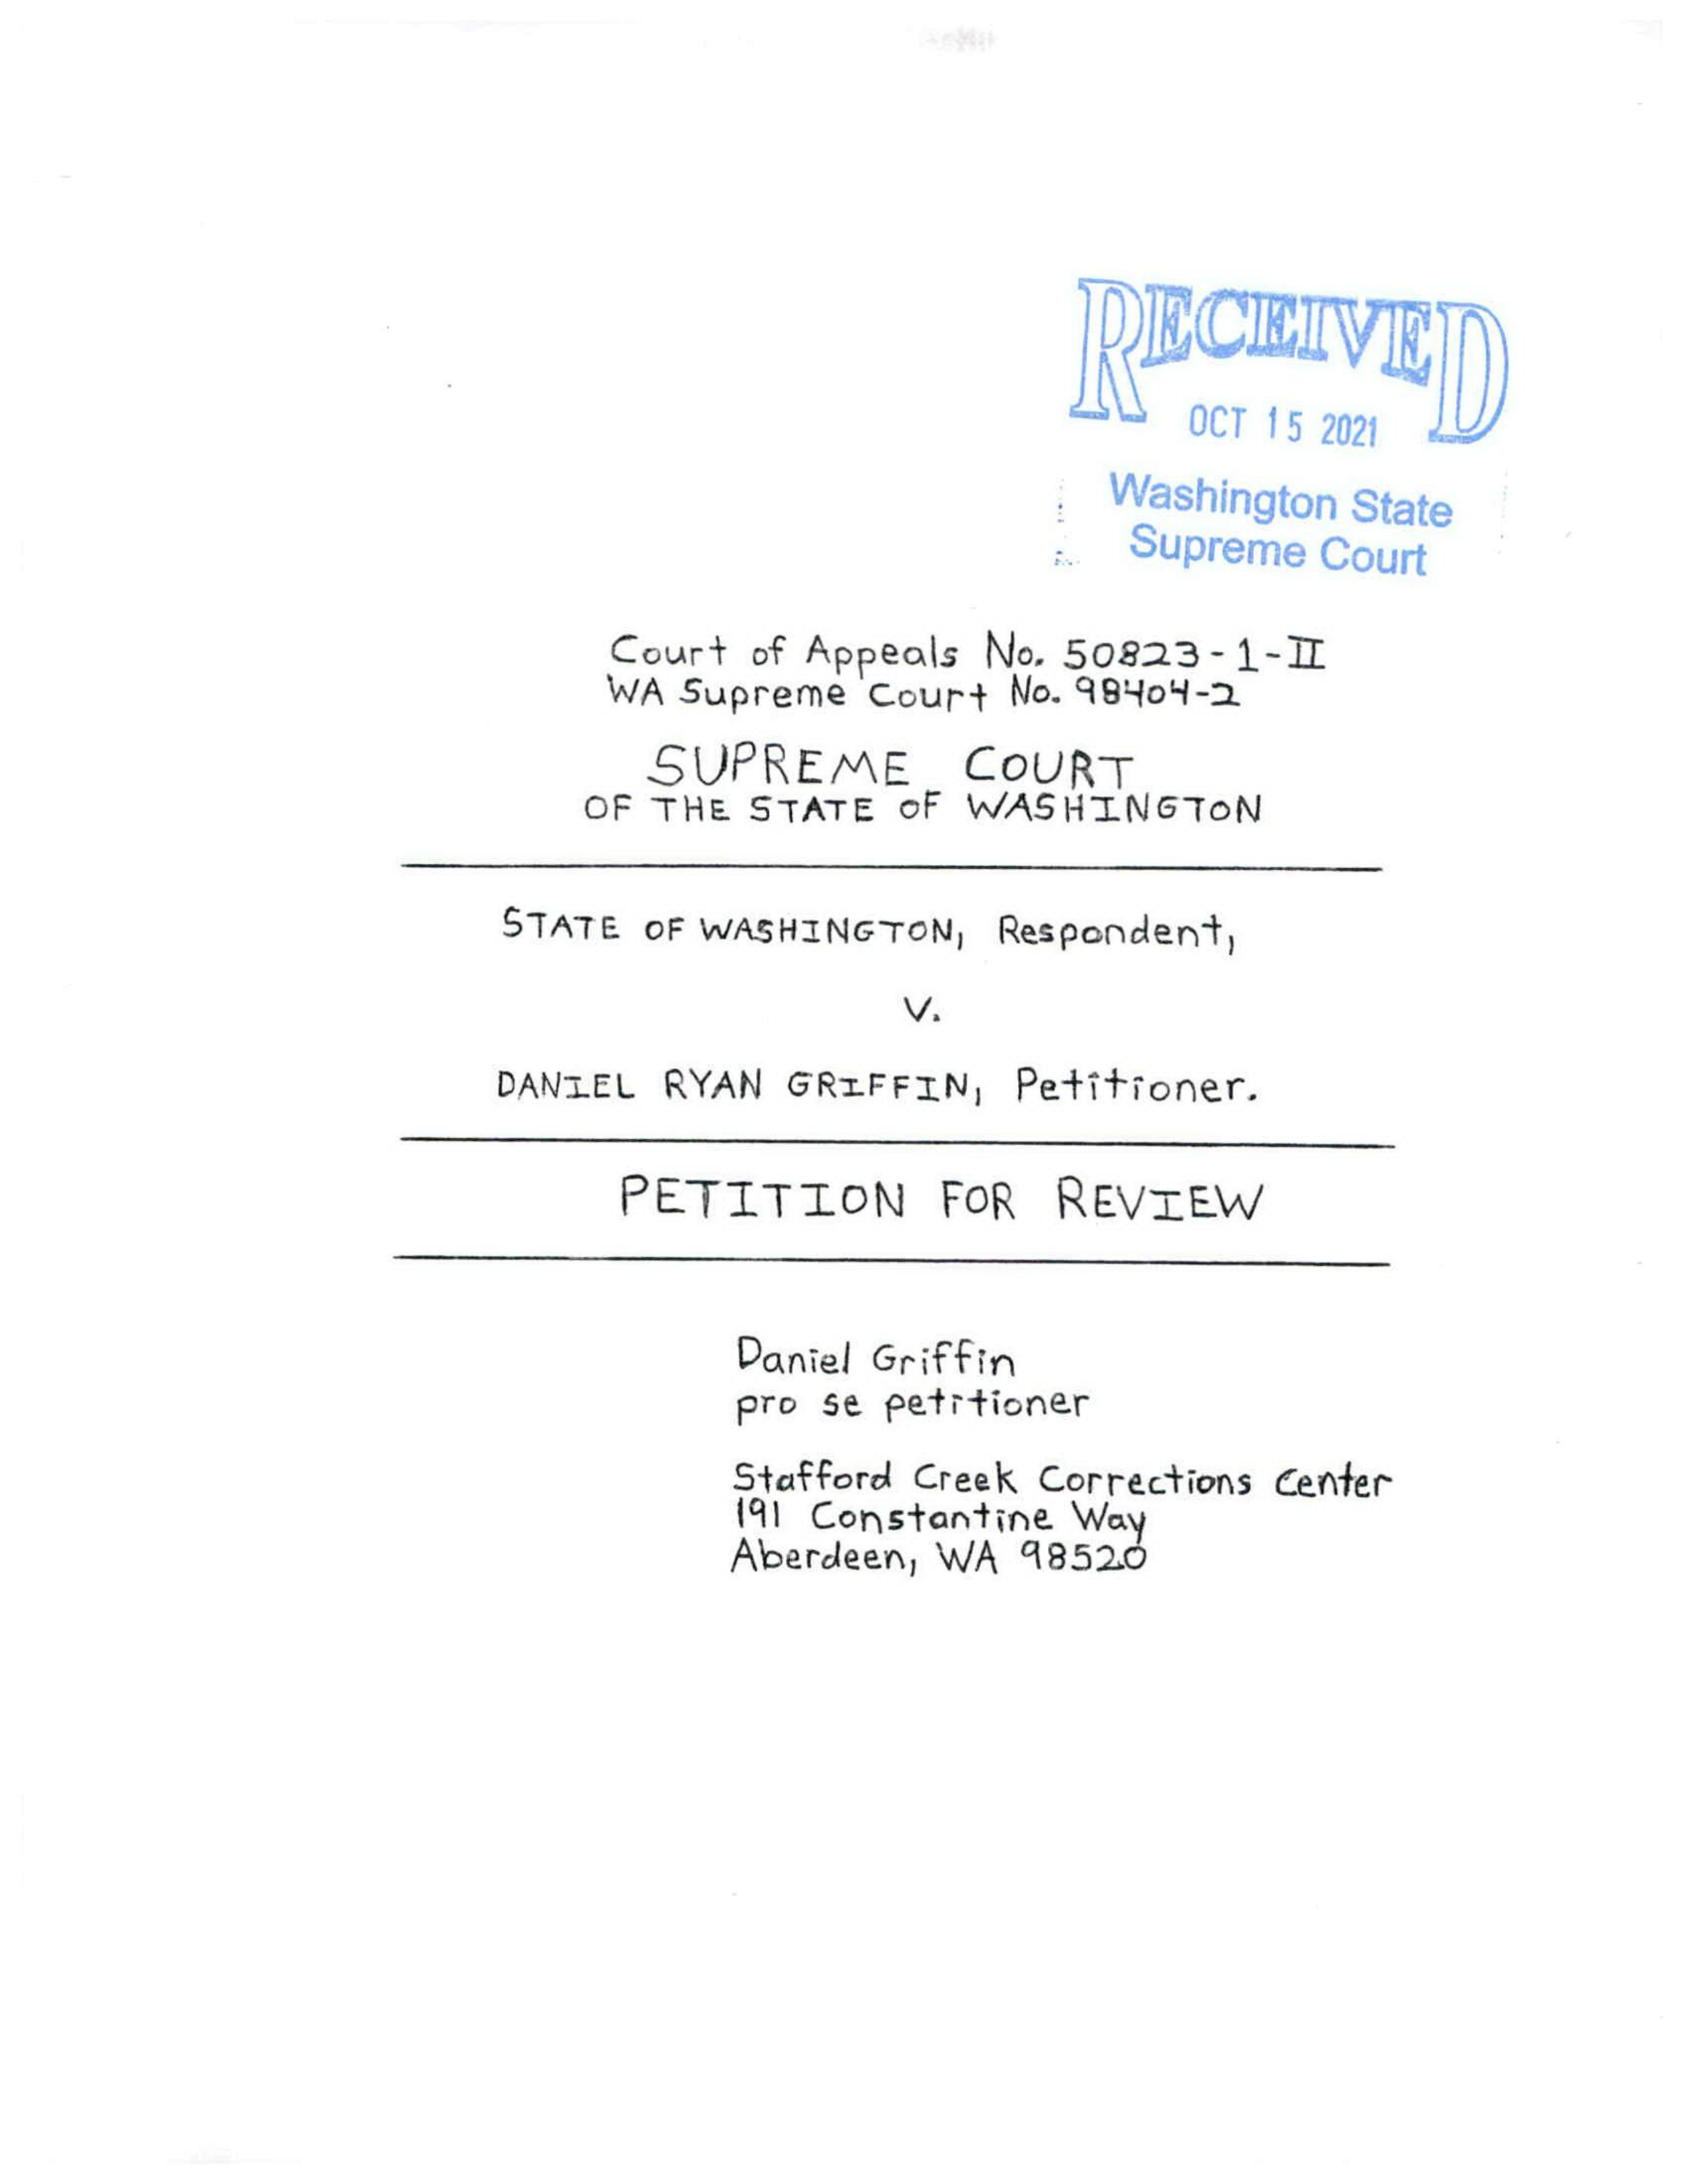 RECEIVED
OCT 15 2021
Washington State
Supreme Court
Court of Appeals No. 50823-1-II
WA Supreme Court No. 98404-2
SUPREME COURT
OF THE STATE OF WASHINGTON
STATE OF WASHINGTON, Respondent,
V.
DANIEL RYAN GRIFFIN, Petitioner.
PETITION FOR REVIEW
Daniel Griffin
pro se petitioner
Stafford Creek Corrections Center
191 Constantine Way
Aberdeen, WA 98520